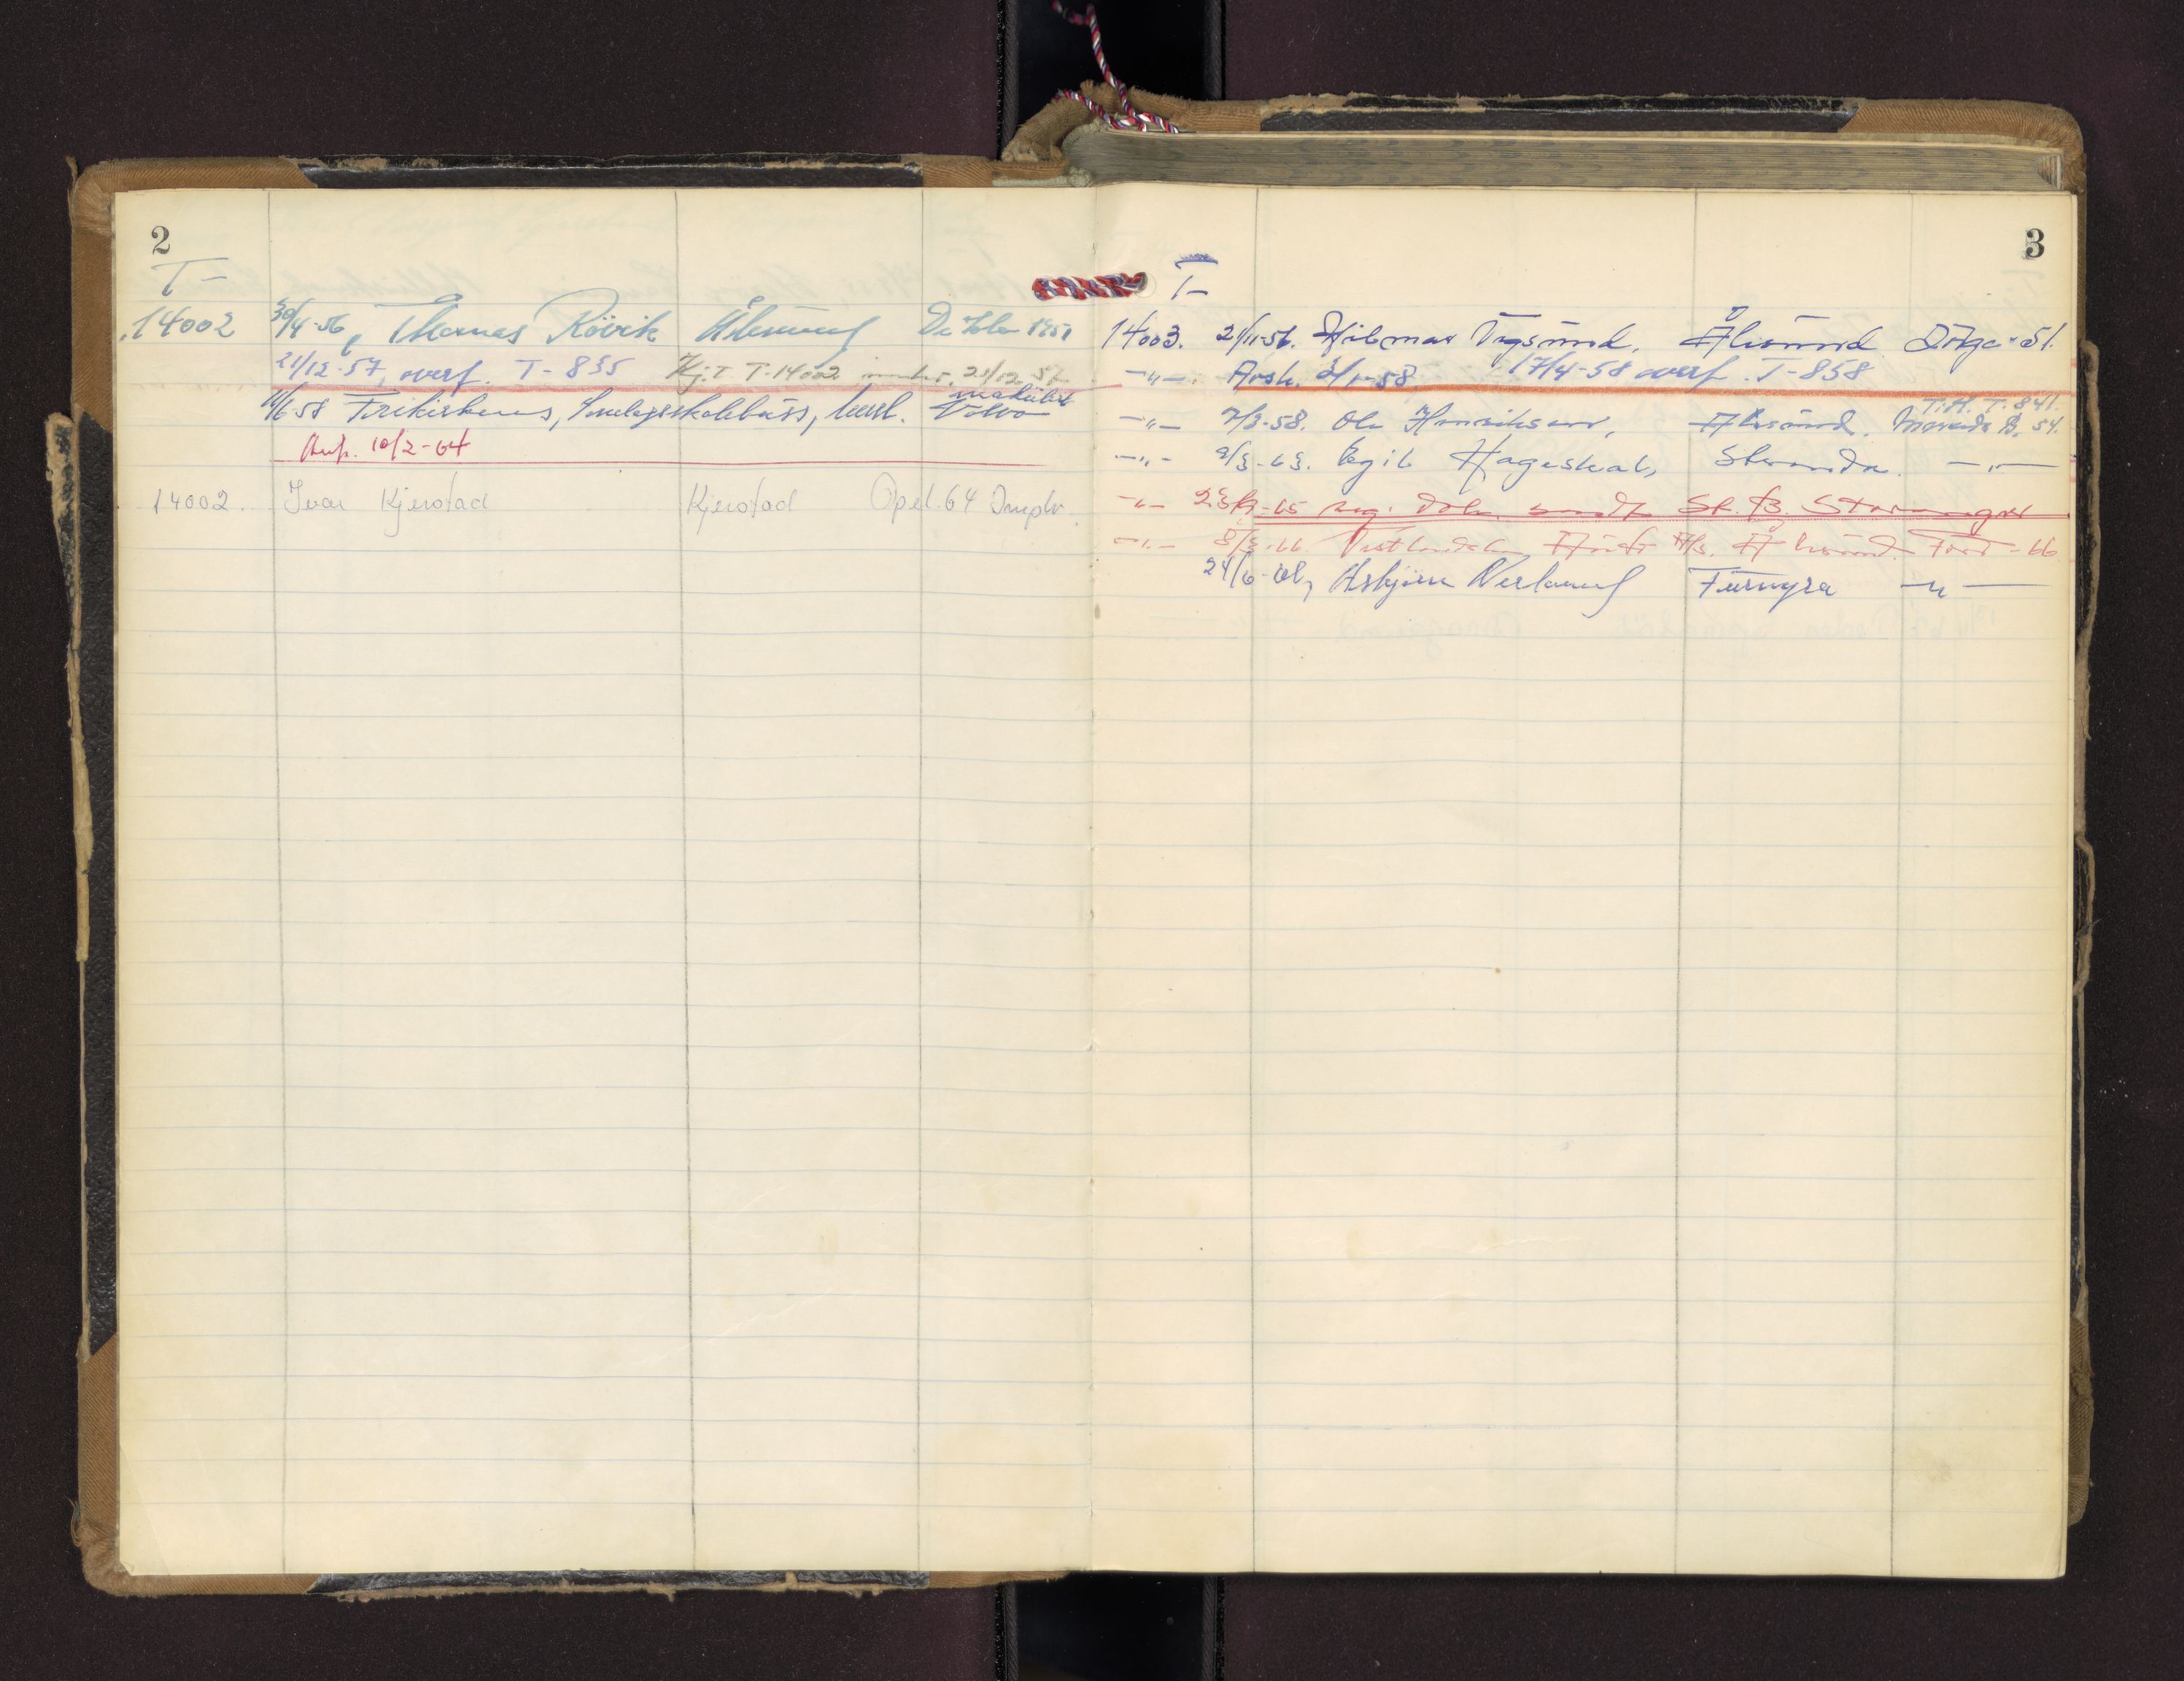 2
T-
14002 30/4-56, Thomas Rövik Ålesund De Soto 1951
21/12-57, overf. T-835 Kj.t. T-14002 21/12-57
makulert
11/6-58 Frikirkens, Søndagsskolebuss, Volvo
10/2-64
14002. Ivar Kjerstad Kjerstad Opel.64
3
T-
14003. 21/11-56. Hilmar Vegsund. Ålesund Dodge-51.
-"- Avsk. 3/1-58. 17/4-58 overf. T-858
T.H. T. 841.
-"- 7/3-58. Ole Henriksen, Ålesund. 54.
-"- 9/3-63. Egil Hageskal, Stranda -"-
-"- 23/2-65 reg. dok. sendt St. B. Stavanger
-"- 8/3-66 Vestlandske A/s. Ålesund Ford-66
24/6-66, Asbjørn Verlund Furmyra -"-